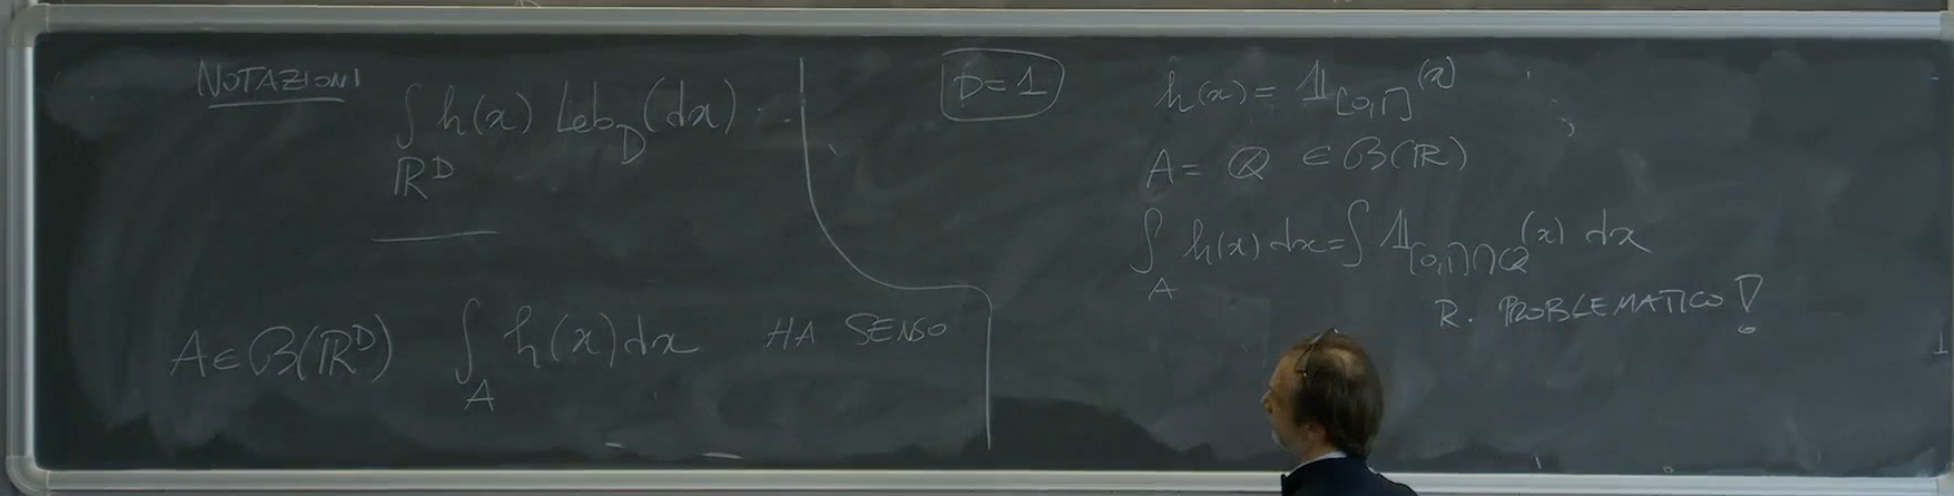 NOTAZIONI
∫_{ℝ^D} h(x) Leb_D(dx)
A ∈ ℬ(ℝ^D) ∫_A h(x) dx HA SENSO
D=1
h(x) = 𝟙_{[0,1]}(x)
A = ℚ ∈ ℬ(ℝ)
∫_A h(x) dx = ∫ 𝟙_{[0,1]∩ℚ}(x) dx
R. PROBLEMATICO!